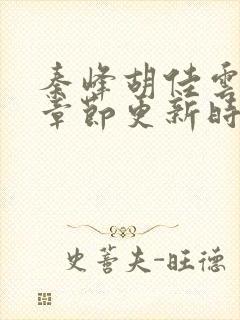 秦峰胡佳雲
章節更新時
史蒼夫-旺德